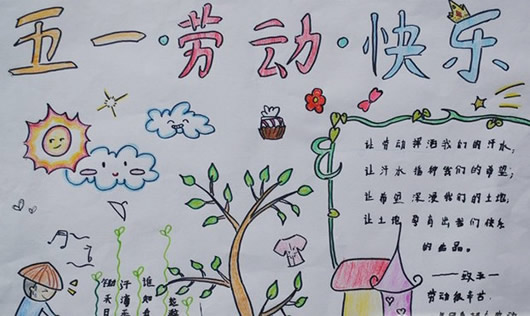 五一·劳动·快乐
让劳动挥洒我们的汗水,
让汗水播种我们的希望;
让希望浸漫我们的土地,
让土地孕育出我们快乐
的果品。
——致五一
汗滴
谁知